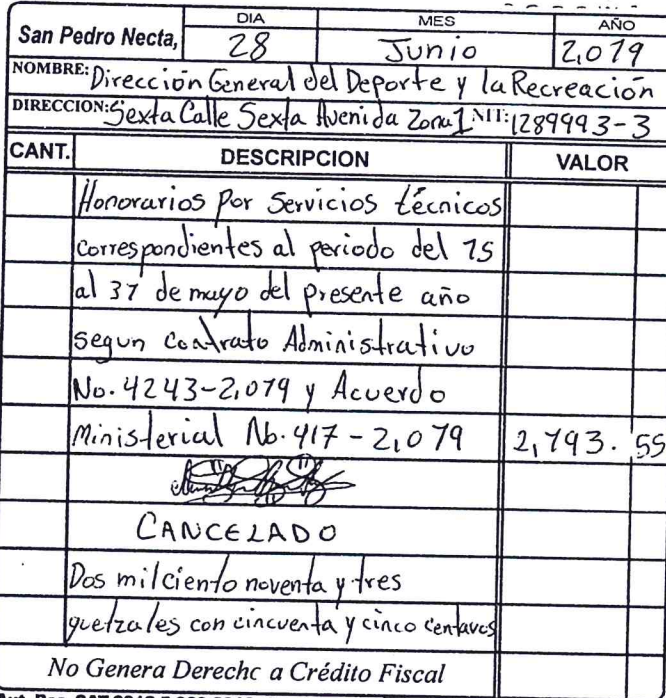 DIA MES AÑO
San Pedro Necta, 28 Junio 2,019
NOMBRE: Dirección General del Deporte y la Recreación
DIRECCION: Sexta Calle Sexta Avenida Zona 1 NIT: 1289993-3
CANT. DESCRIPCION VALOR
Honorarios por Servicios técnicos
correspondientes al periodo del 15
al 31 de mayo del presente año
segun Contrato Administrativo
No. 4243-2,019 y Acuerdo
Ministerial No. 417 - 2,019 2,193. 55
CANCELADO
Dos mil ciento noventa y tres
quetzales con cincuenta y cinco centavos
No Genera Derecho a Crédito Fiscal